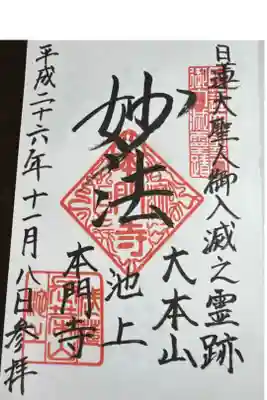 日蓮大聖人御入滅之霊跡
大本山
池上
本門寺
妙法
平成二十六年十一月八日参拝